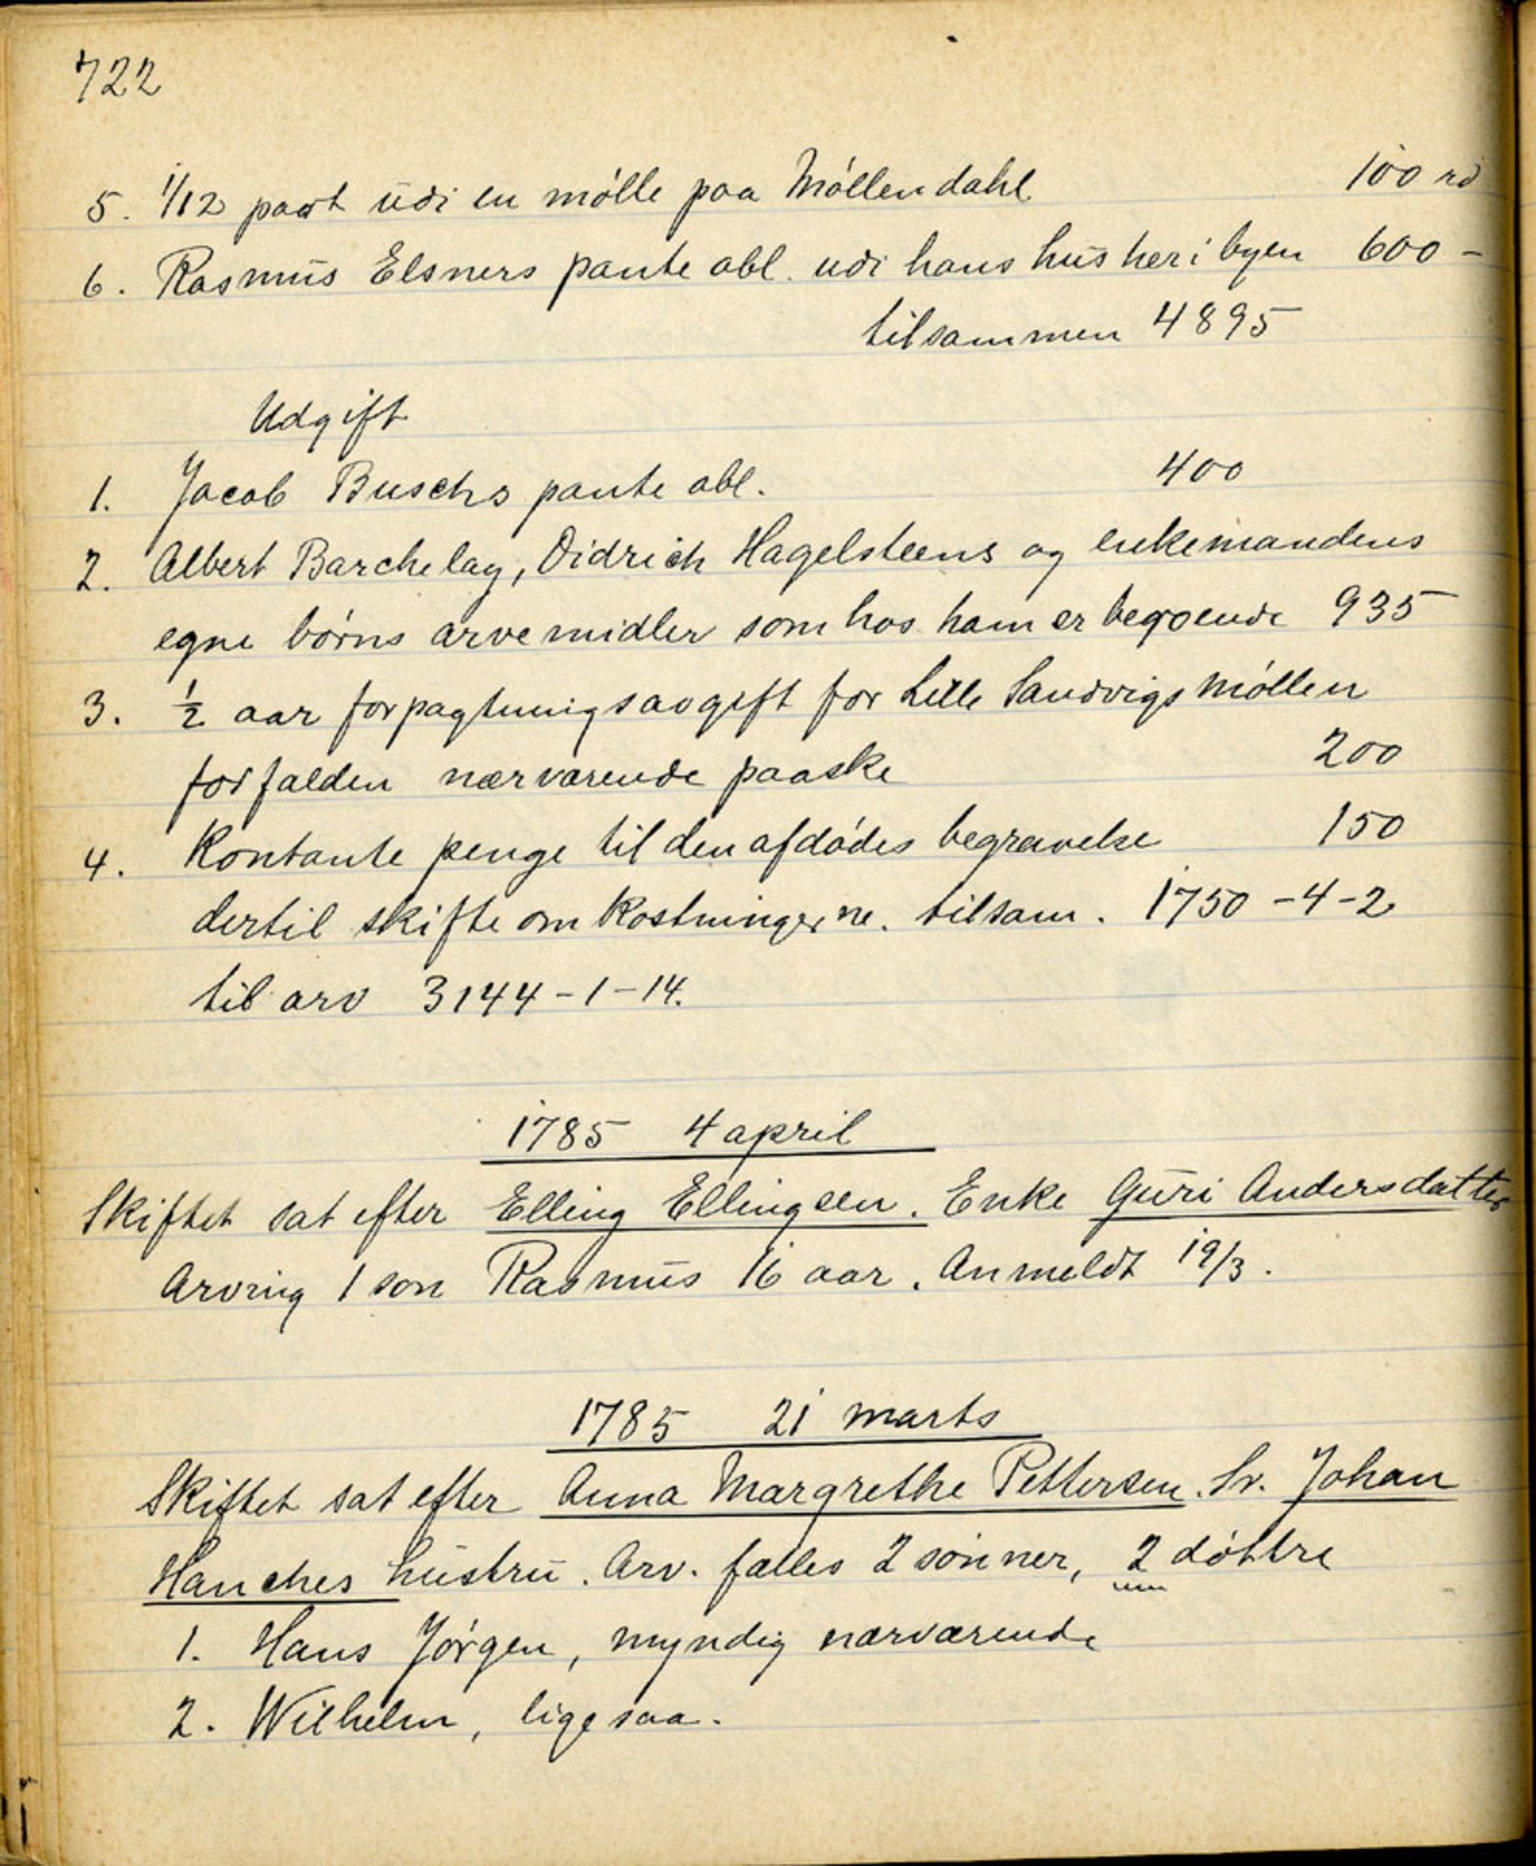 722
5. 1/12 part udi en mølle paa Møllendahl 100 rd
6. Rasmus Elsners pante obl. udi hans hus her i byen 600 -
tilsammen 4895
Udgift
1. Jacob Buschs pante obl. 400
2. Albert Barchelay, Didrich Hagelsteens og enkemandens
egne børns arvemidler som hos ham er begoende 935
3. 1/2 aar forpagtningsavgift for Lille Sandvigs Møllen
forfalden nærværende paaske 200
4. Kontante penge til den afdødes begravelse 150
dertil skifteomkostningerne. tilsam. 1750 - 4 - 2
til arv 3144 - 1 - 14.
1785 4 april
Skiftet sat efter Elling Ellingsen. Enke Guri Andersdatter
Arving 1 son Rasmus 16 aar. Anmeldt 19/3.
1785 21 marts
Skiftet sat efter Anna Margrethe Pettersen. Sr. Johan
Hanches hustru. Arv. fælles 2 sønner, 2 døttre
1. Hans Jørgen, myndig nærværende
2. Wilhelm, ligesaa.